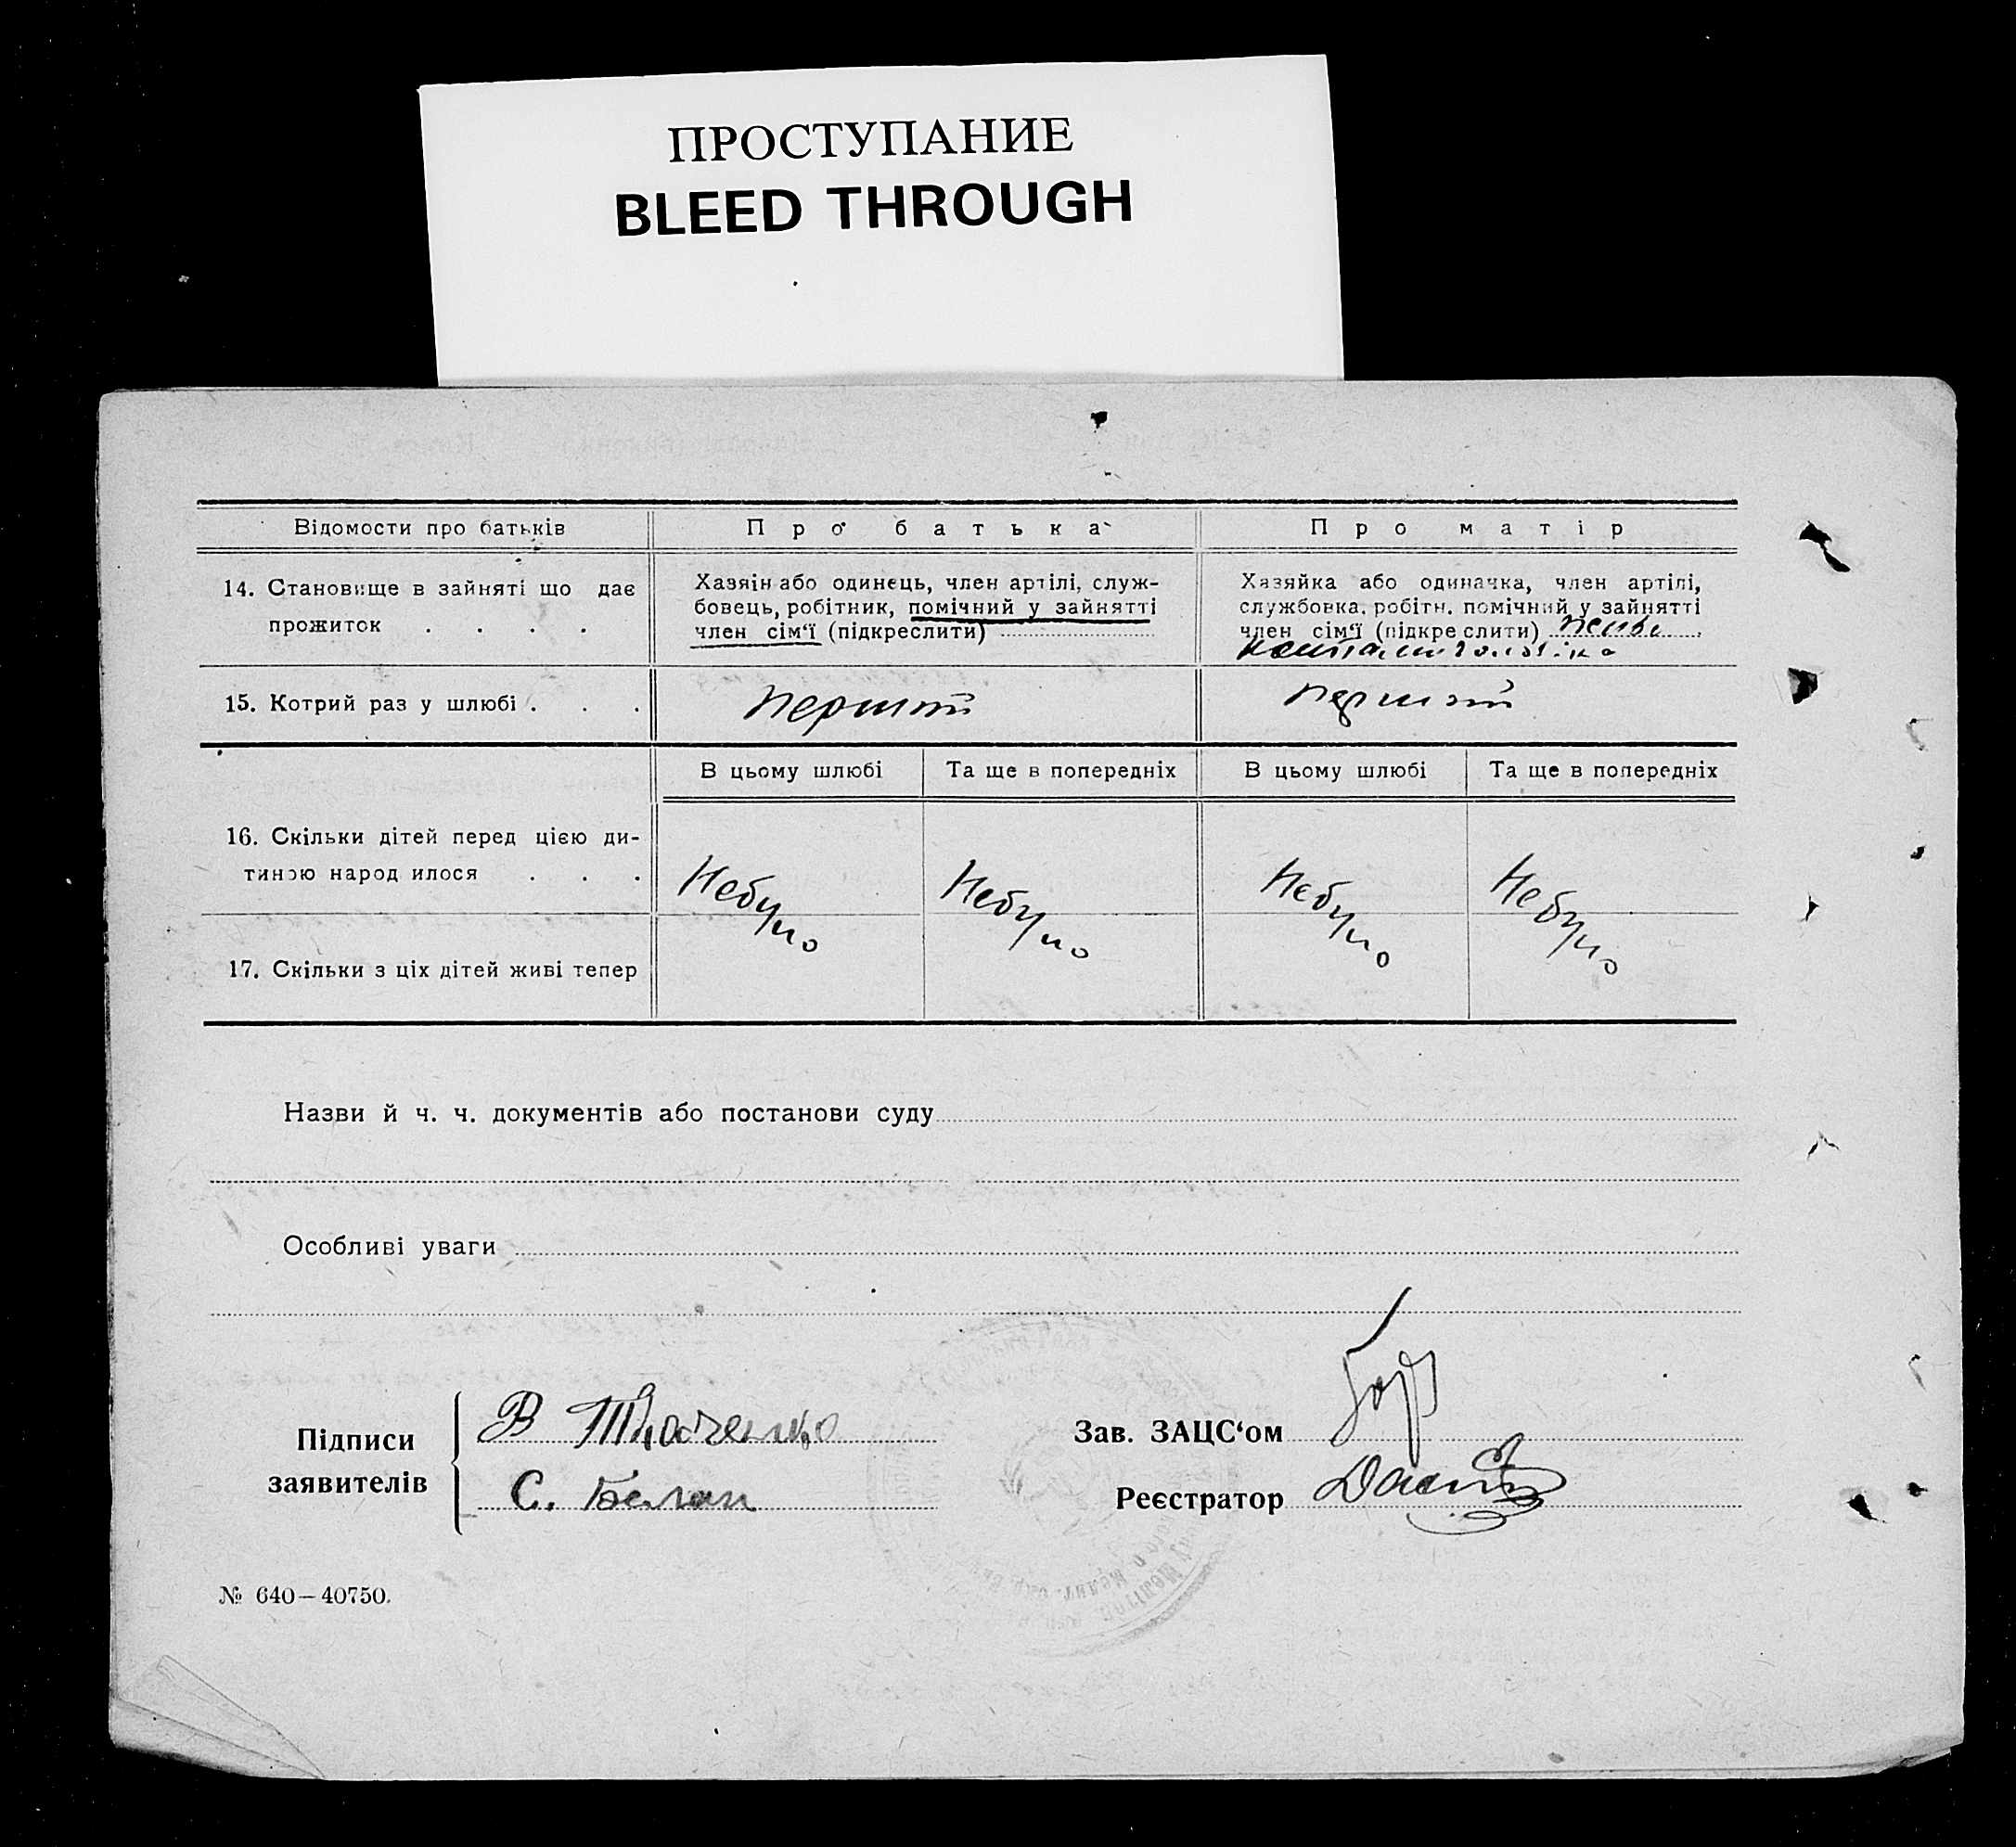 ПРОСТУПАНИЕ
BLEED THROUGH
Відомости про батьків
Про батька
Про матір
14. Становище в зайняті що дає
прожиток . . . .
Хазяін або одинець, член артілі, служ-
бовець, робітник, помічний у зайнятті
член сім‘ї (підкреслити)
Хазяйка або одиначка, член артілі,
службовка, робітн. помічний у зайнятті
член сім‘ї (підкреслити)
15. Котрий раз у шлюбі . . .
перший
перший
В цьому шлюбі
Та ще в попередніх
В цьому шлюбі
Та ще в попередніх
16. Скільки дітей перед цією ди-
тиною народилося . . .
Небуло
Небуло
Небуло
Небуло
17. Скільки з ціх дітей живі тепер
Назви й ч. ч. документів або постанови суду
Особливі уваги
Підписи
заявителів
В Ткаченко
С. Белан
Зав. ЗАЦС‘ом
Реєстратор
№ 640—40750.